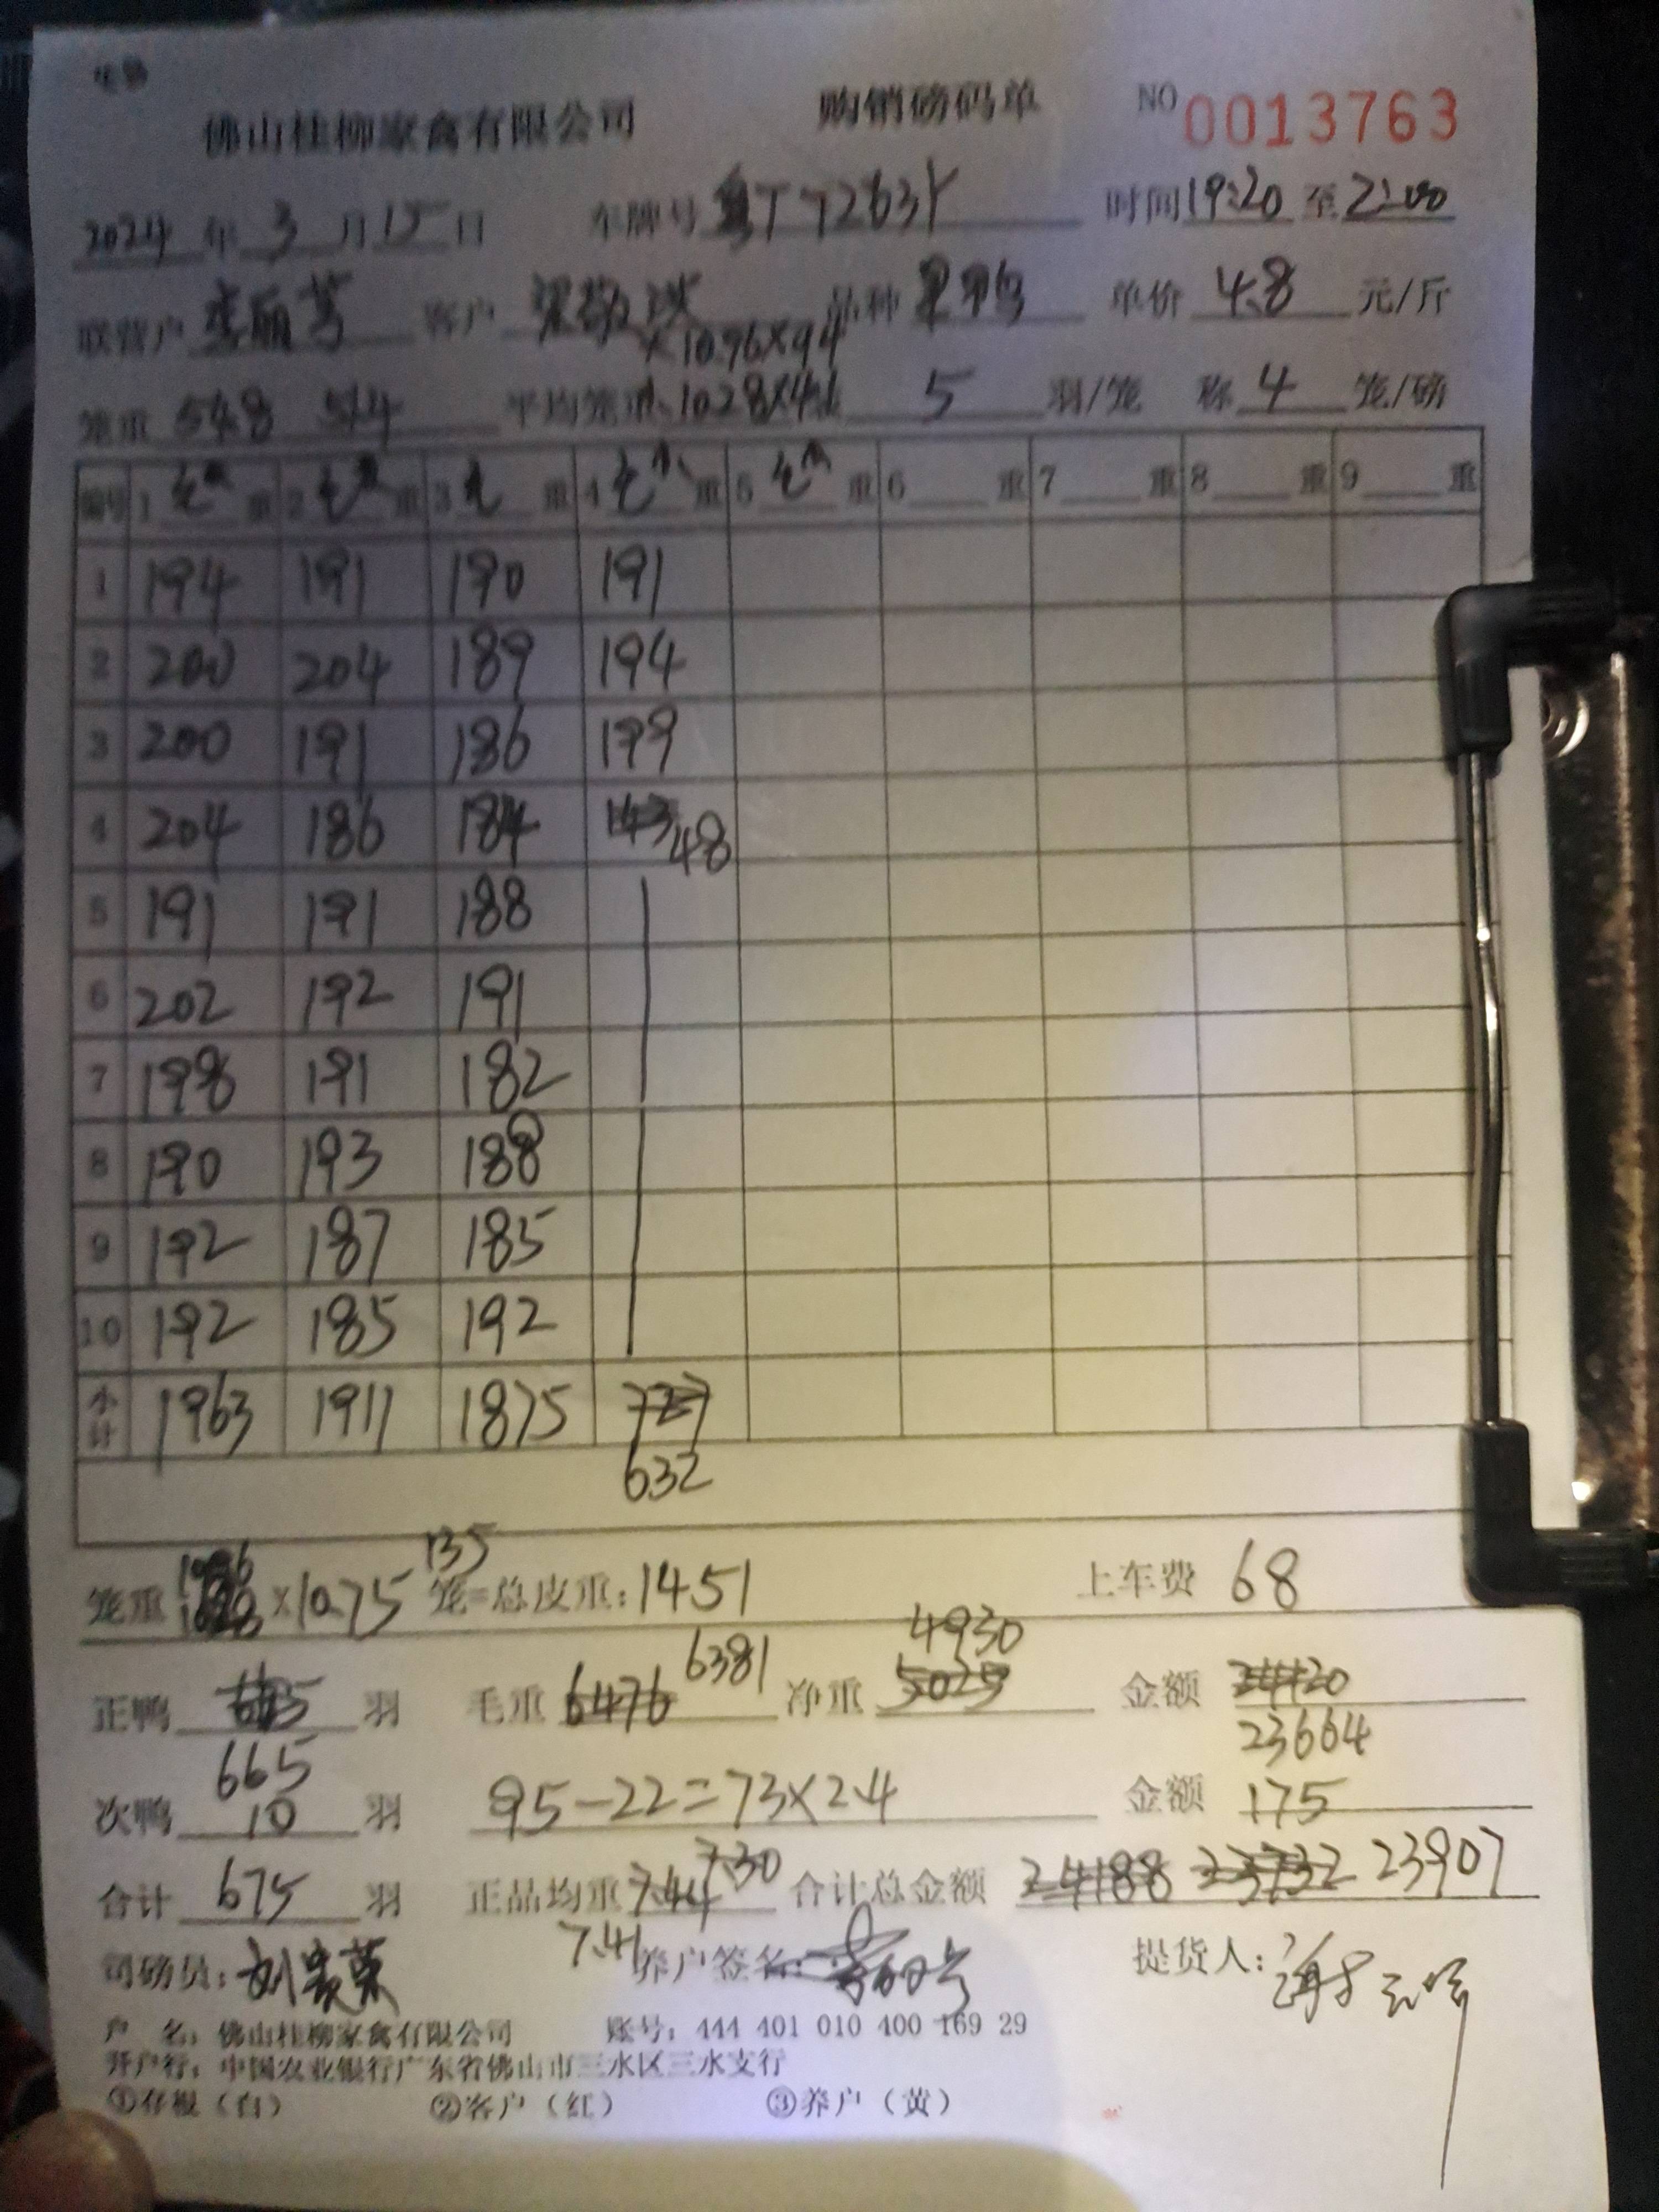 佛山桂柳家禽有限公司 购销磅码单 NO 0013763
2024 年 3 月 15 日 车牌号 粤T7263Y 时间 19:20 至 21:00
联营户 客户 品种 单价 4.8 元/斤
×10.96×94
笼重 548 514 平均笼重 10.28×41 5 羽/笼 称 4 笼/磅
编号 1 毛 重 2 毛 重 3 毛 重 4 毛 重 5 毛 重 6 重 7 重 8 重 9 重
1 194 191 190 191
2 200 204 189 194
3 200 191 186 199
4 204 186 184 143 48
5 191 191 188
6 202 192 191
7 198 191 182
8 190 193 188
9 192 187 185
10 192 185 192
小计 1963 1911 1875 727
632
笼重 ×10.75 135 笼=总皮重: 1451 上车费 68
正鸭 羽 毛重 6476 6381 净重 5025 4930 金额 24120
665 23664
次鸭 10 羽 95-22=73×2.4 金额 175
合计 675 羽 正品均重 7.44 7.30 合计总金额 24188 23732 23907
7.41
司磅员: 养户签名: 提货人:
户 名: 佛山桂柳家禽有限公司 账号: 444 401 010 400 169 29
开户行: 中国农业银行广东省佛山市三水区三水支行
①存根（白） ②客户（红） ③养户（黄）